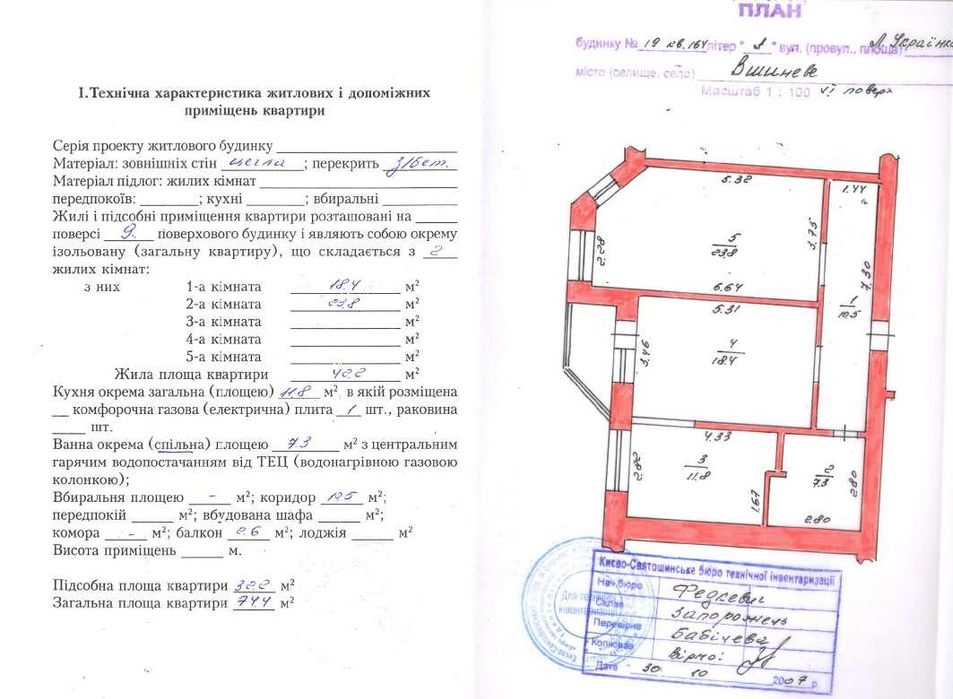 I.Технічна характеристика житлових і допоміжних
приміщень квартири
Серія проекту житлового будинку
Матеріал: зовнішніх стін цегла ; перекрить з/бет.
Матеріал підлог: жилих кімнат
передпокоїв: ; кухні ; вбиральні
Жилі і підсобні приміщення квартири розташовані на
поверсі 9 поверхового будинку і являють собою окрему
ізольовану (загальну квартиру), що складається з 2
жилих кімнат:
з них 1-а кімната 18.4 м²
2-а кімната 23.8 м²
3-а кімната м²
4-а кімната м²
5-а кімната м²
Жила площа квартири 42.2 м²
Кухня окрема загальна (площею) 11.8 м², в якій розміщена
комфорочна газова (електрична) плита 1 шт., раковина
шт.
Ванна окрема (спільна) площею 7.3 м² з центральним
гарячим водопостачанням від ТЕЦ (водонагрівною газовою
колонкою);
Вбиральня площею - м²; коридор 10.5 м²;
передпокій м²; вбудована шафа м²;
комора - м²; балкон 2.6 м²; лоджія м²
Висота приміщень м.
Підсобна площа квартири 32.2 м²
Загальна площа квартири 74.4 м²
ПЛАН
будинку № 19 кв. 164 літер " А " вул. (провул., площа) Л. Українки
місто (селище, село) Вишневе
Масштаб 1 : 100 VI поверх
5.32
1.44
2.28
5
23.8
3.75
7.30
6.64
5.31
1
10.5
3.46
4
18.4
4.33
2.82
3
11.8
1.67
2
7.3
2.80
2.80
Києво-Святошинське бюро технічної інвентаризації
Нач.бюро Федкевич
Склав Запорожець
Перевірив Бабічева
Копіював Вірно:
Дата " 30 10 2007 р.